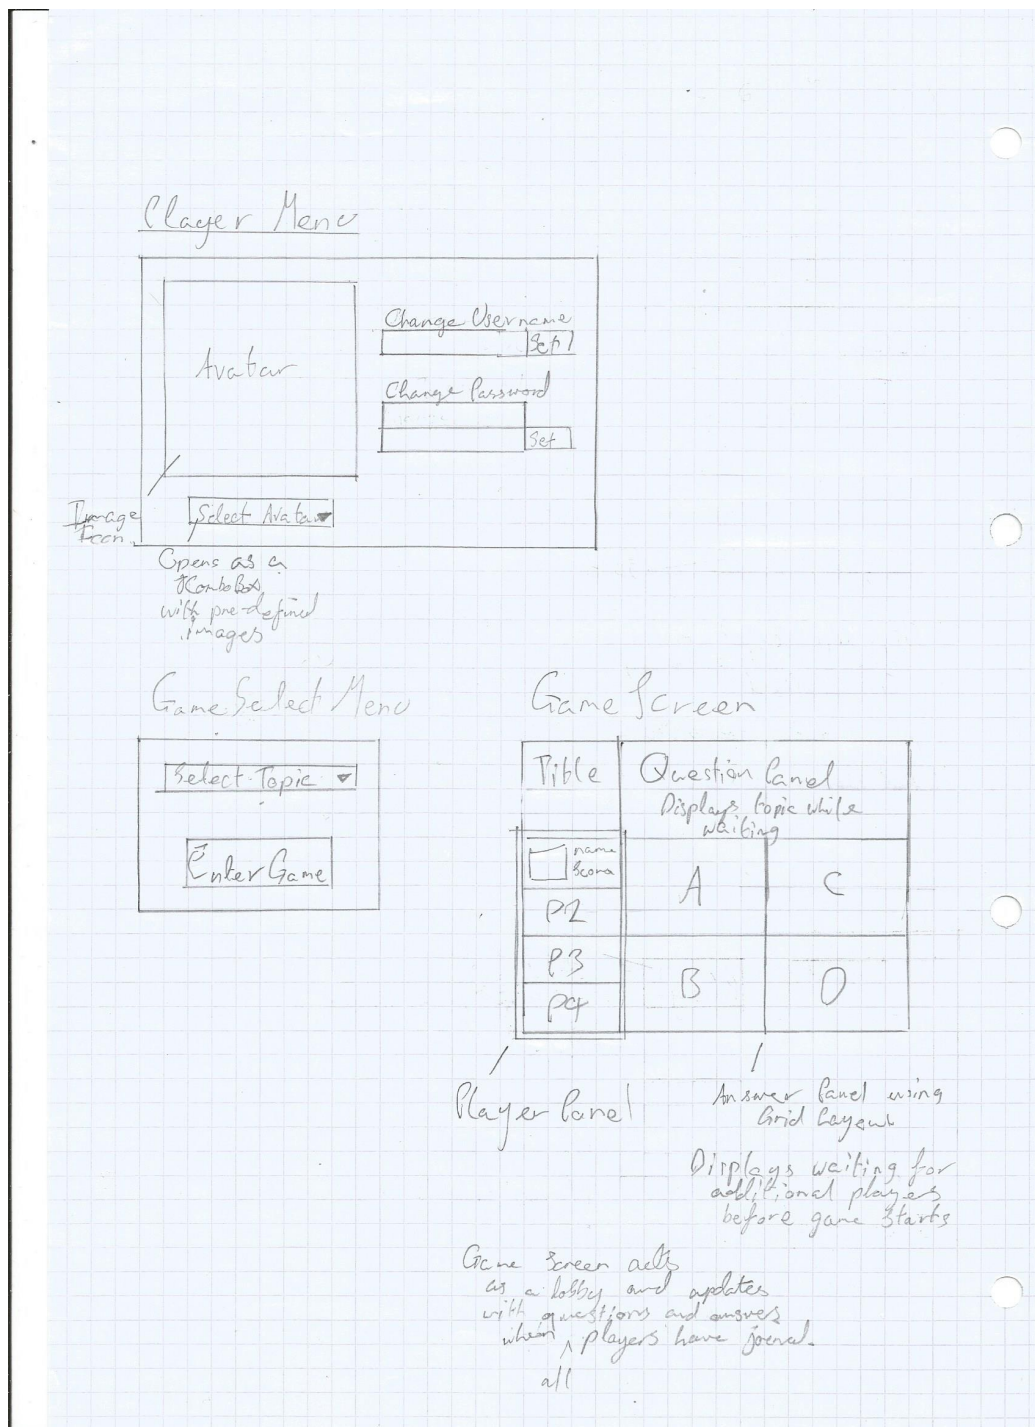 Player Menu
Avatar
Change Username
Set
Change Password
Set
Image
Icon
Select Avatar
Opens as a
JComboBox
with pre-defined
images
Game Select Menu
Select Topic
Enter Game
Game Screen
Title
Question Panel
Displays topic while
waiting
name
Score
P2
P3
P4
A
C
B
D
Player Panel
Answer Panel using
Grid Layout
Displays waiting for
additional players
before game starts
Game Screen acts
as a lobby and updates
with questions and answers
when all players have joined.